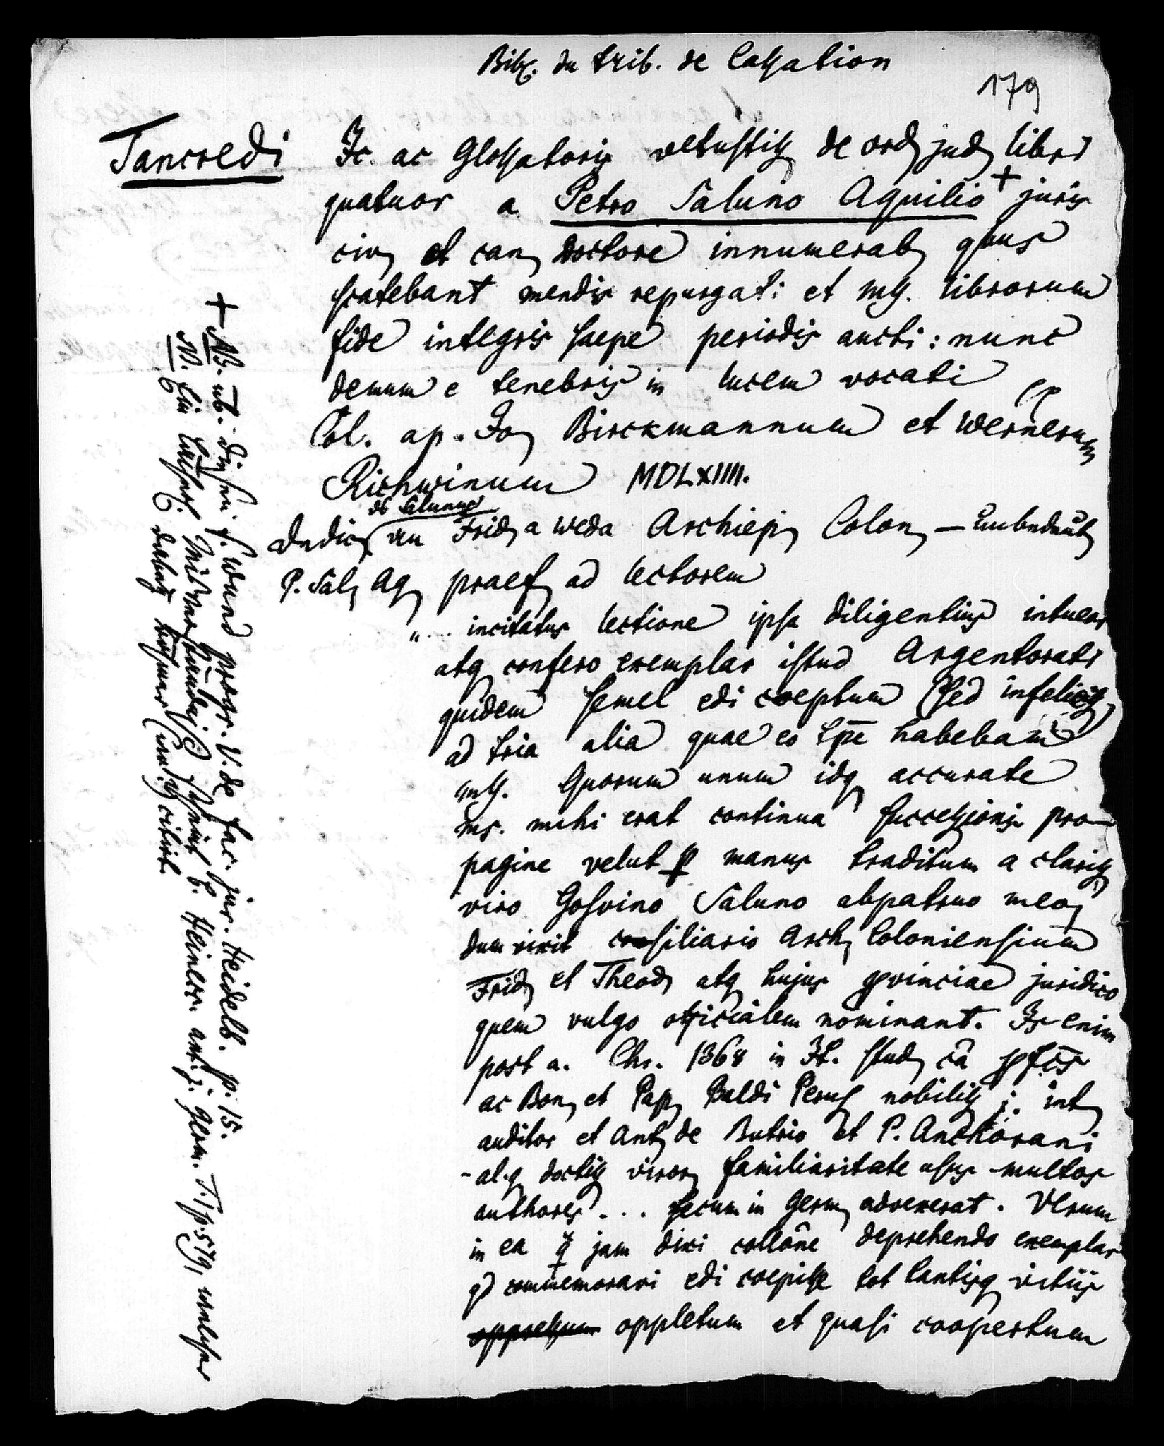 Bibl. du trib. de Cassation
179
Tancredi Jc. ac Glossatoris vetustiss de ord jud libri
quatuor a Petro Saluno Aquilio + juris
civ et can doctore innumerab quus
scatebant mendis repurgati et mss. librorum
fide integris saepe periodis aucti: nunc
demum e tenebris in lucem vocati
Col. ap. Jo Birckmannum et Wernerum
Richwinum MDLXIIII.
ds Salunus
Dedic an Frid a Weda Archiep Colon —
P. Sal Aq praef ad lectorem
"... incitatus lectione ipsa diligentius intueor
atq confero exemplar istud Argentorati
quidem semel edi coeptum (sed infeliciss)
ad tria alia quae eo tpe habebam
mss. Quorum unum idq accurate
ms. mihi erat continua successionis pro-
pagine velut p manus traditum a clariss
viro Gosvino Saluno abpatruo meo,
dum vixit consiliario Arch Coloniensium
Frid et Theod atq hujus provinciae juridico
quem vulgo officialem nominant. Is enim
post a. Chr. 1368 in It. stud cã pfcs
ac Bon et Pap Baldi Perus nobiliss j. int
auditor et Ant de Butrio et P. Anchorani
al.q doctiss viror familiaritate usus multos
authores ... secum in Germ advexerat. Verum
in ea q jam dixi collõne deprehendo exemplar
qd commemoravi edi coepisse tot tantisq vitiis
oppressum oppletum et quasi coopertum
+ NB. üb. diesen s. Wund progr. V. de fac. jur. Heidelb. p. 15.
NB. Ein b. Heinecc. ant. j. germ. T. I p. 579, welcher
dabey citirt